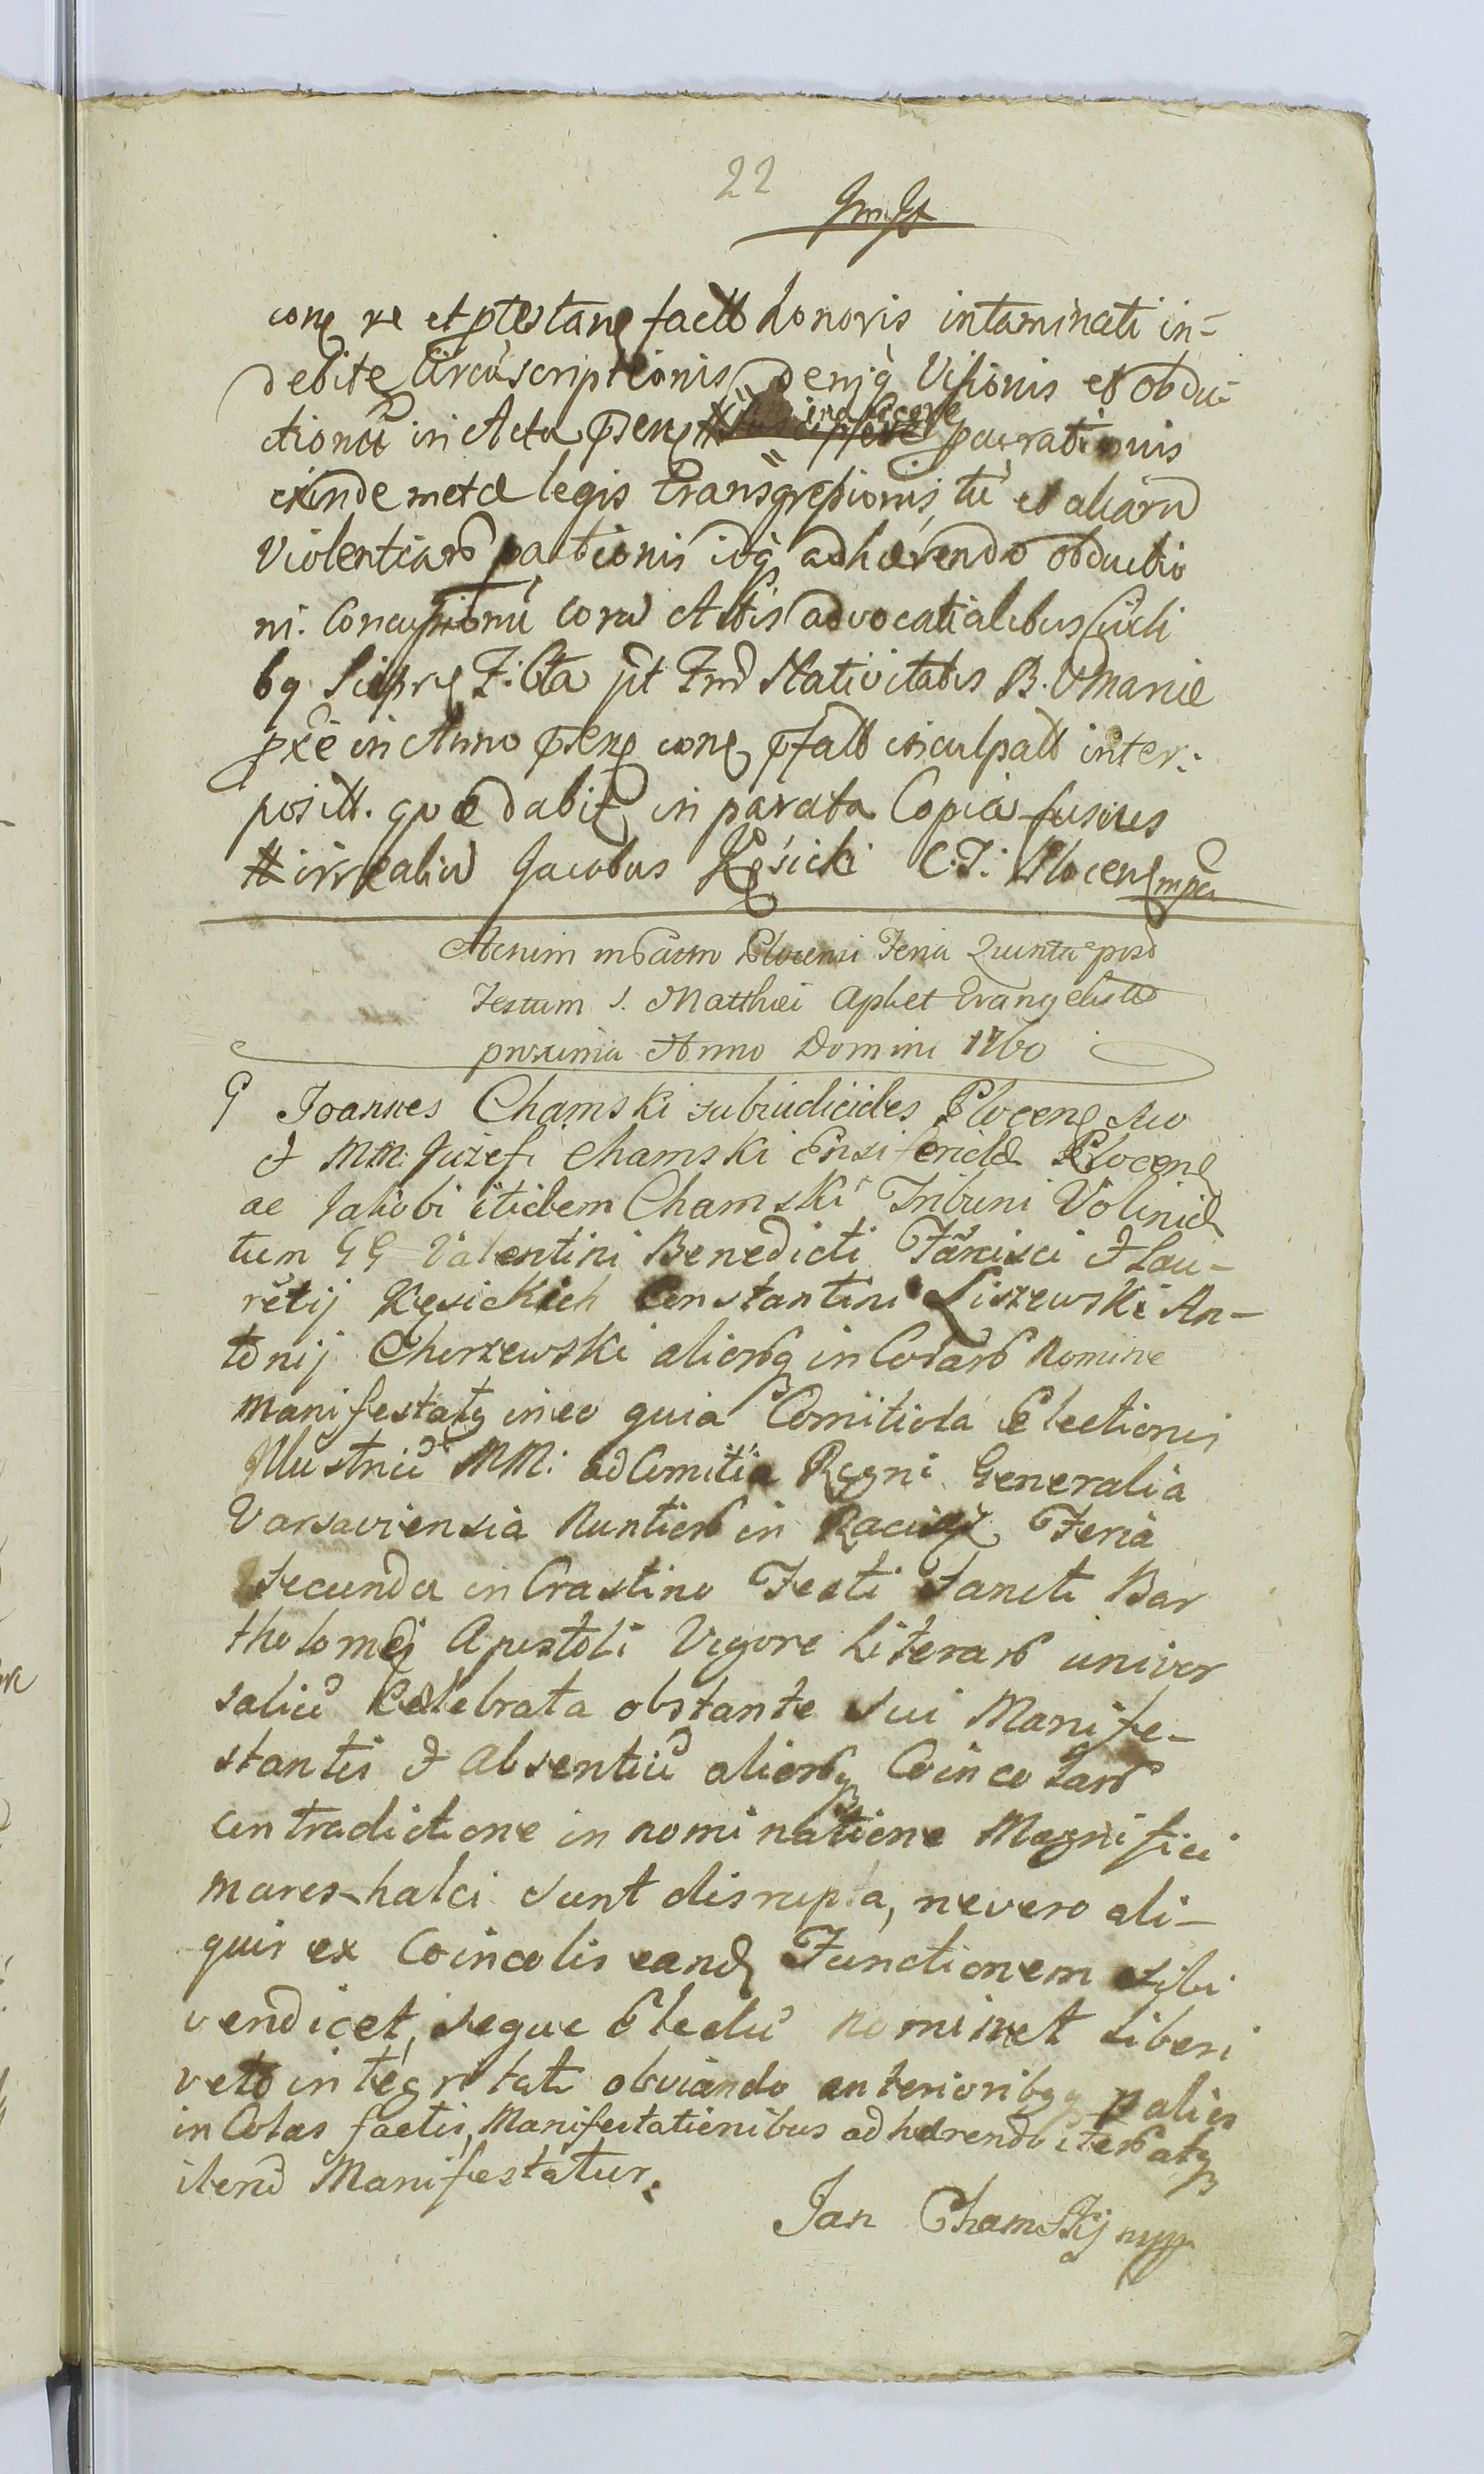 22
conq re et ptestanq factt honoris intaminati in-
debite Circuscriptionis deniq Visionis et obdu-
ctionu in Acta psenq pacrationis
exinde metæ legis transgressionis, tu et aliaru
violentiar patrionis idq adhærendo obductio
ni. Concussionu cora Actis advocatialibus
bq Sieprq F. 6ta pt Fm Nativitatis B. V Mariæ
pxe in Anno psenq conq pfatt inculpatt inter:
positt. quæ dabit in parata Copia fusius
# Jacobus Kęsicki C. T. Plocenq mpa
Actum in Castro Plocensi Feria Quinta post
Festum S. Matthæi Apli et Evangelistæ
proxima Anno Domini 1760
G Joannes Chamski subiudicides Plocenq suo
& MM. Juzefi Chamski Ensiferidæ Plocenq
ac Jakobi itidem Chamski Tribuni Volinia
tum GG Valentini Benedicti Fancisci & Lau-
retij Kęsickich Constantini Liszewski An-
tonij Chorzewski aliorq inColar Nomine
manifestatq ineo quia Comitiola Electionis
Illustriu MM. ad Comitia Regni Generalia
Varsaviensia Nuntior in Raciąż Feria
Secunda in Crastino Festi Sancti Bar
tholomei Apostoli Vigore Literar univer
saliu Celebrata obstante sui Manife-
stantis & absentiu aliorq Coincolar
contradictione in nominatione Magnifici
mareshalci sunt disrupta, ne vero ali-
quis ex Coincolis eandq Functionem sibi
vendicet, seque Electu nominet Liberi
veto integritati obviando anterioribq p alios
inColas factis, Manifestationibus adhærendo iteratq
iterd Manifestatur.
Jan Chamskij mpp